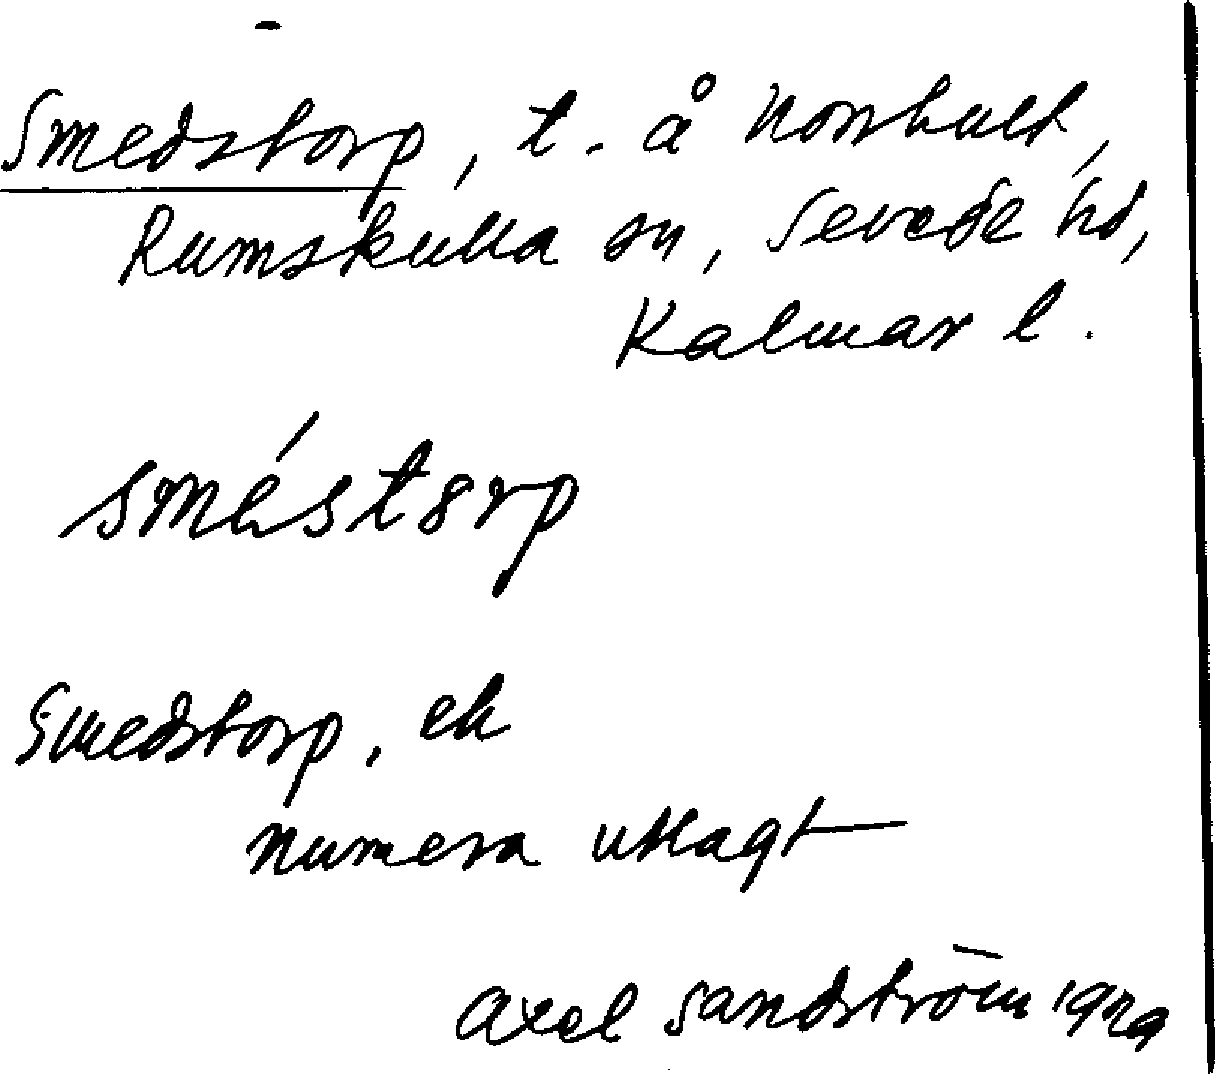 Smedstorp, t. å Norrhult,
Rumskulla sn, Sevede hd,
Kalmar l.
sméstorp
Smedstorp, ek
numera utlagt
Axel Sandström